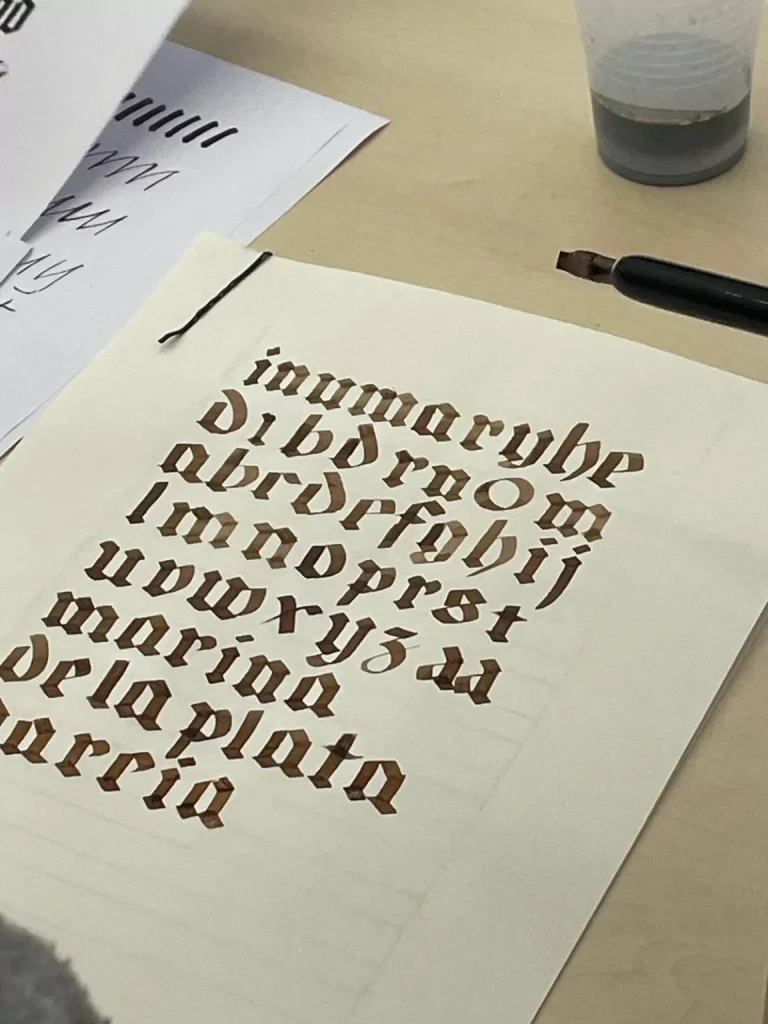 inumaryhe
dibdrnom
abcdefghij
lmnoprst
uvwxyzaa
marina
de la plata
garcia